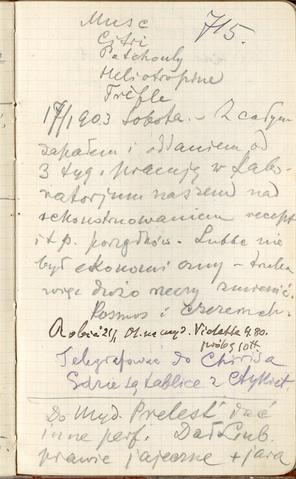 Musc 715.
Citri
Patchouly
Heliotropine
Trèfle
17/I 1903 Sobota. - Z całym
zapałem i oddaniem od
3 tyg. pracuję w Labo-
ratorjum naszem nad
skonstruowaniem recept
i t.p. porządków. Lubbe nie
był ekonomiczny - trzeba
więc dużo rzeczy zmienić.
Kosmos i czeremch.
Robić 21/I 01. na myd. Violette 4.80.
Telegrafować do Chirisa
Gdzie są tablice z etykiet
Do Myd. Prelest' dać
inne perf. Dał Lub.
prawie jajeczne + jara